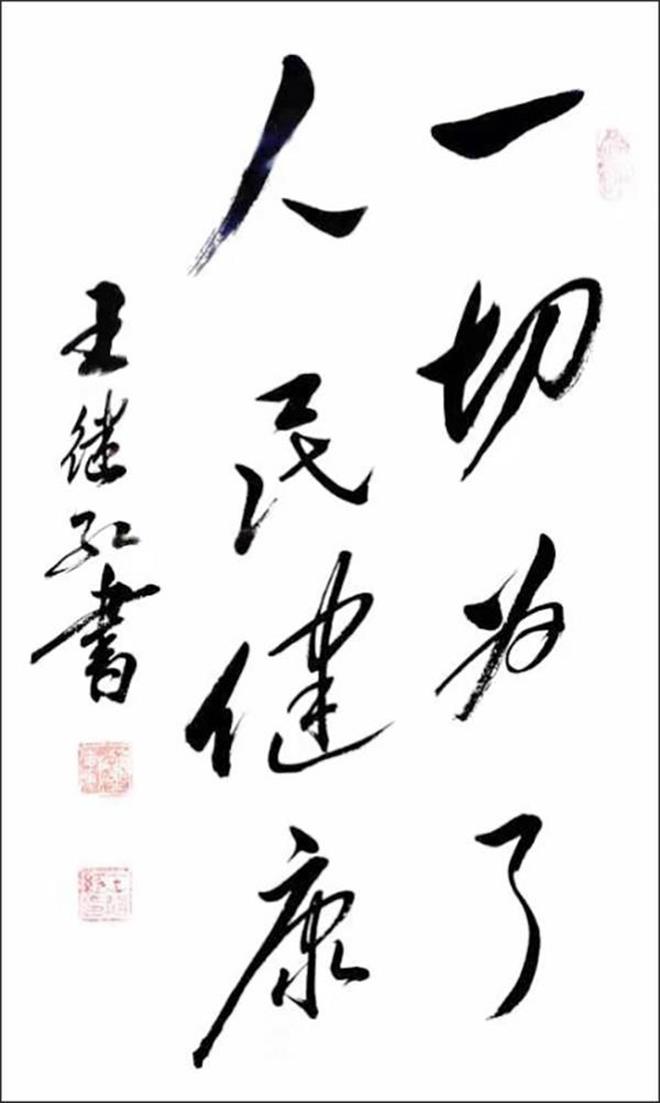 一切为了
人民健康
王继红书